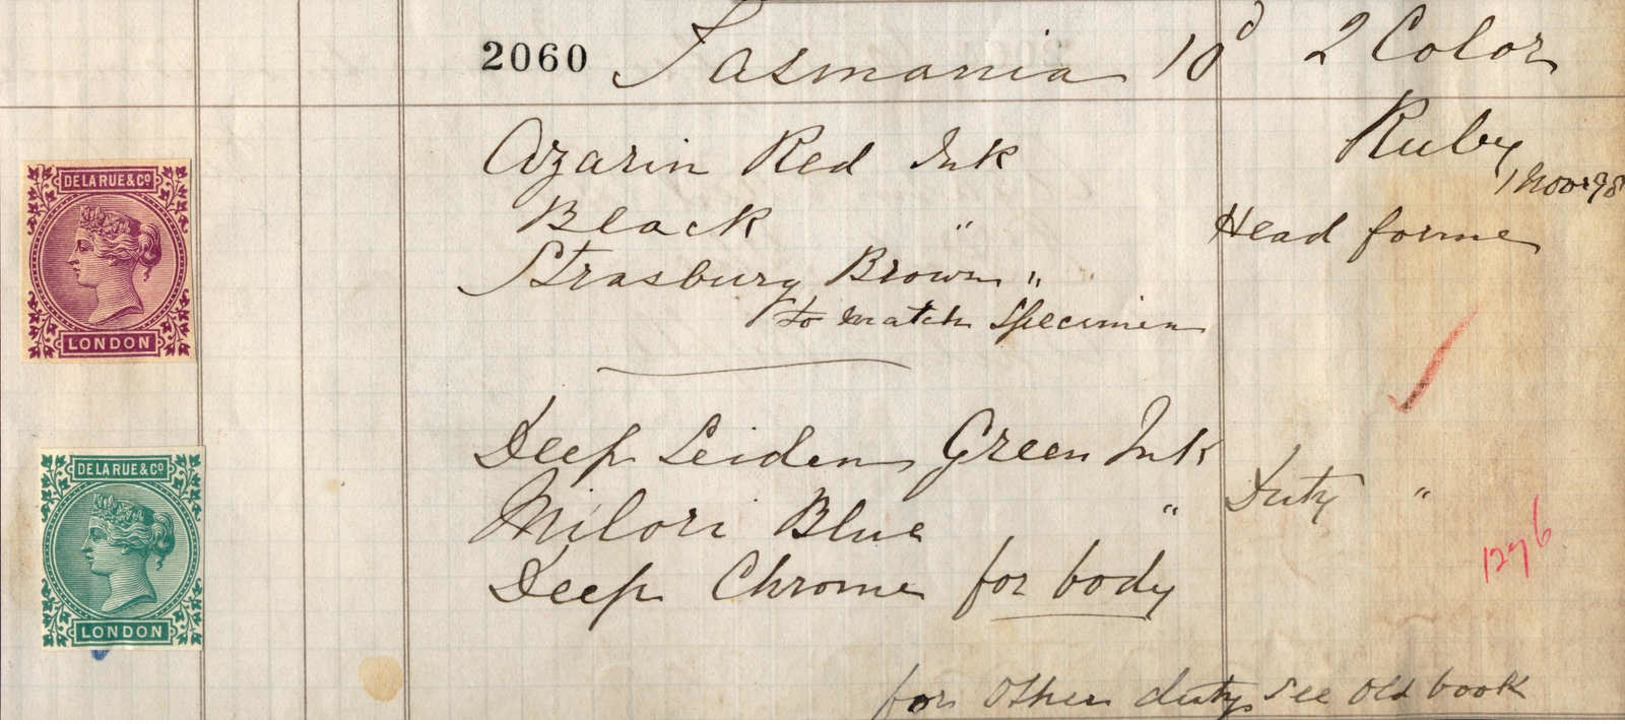 2060 Tasmania 10d 2 Color
Ruby
Azarin Red Ink
1 Nov 98
DE LA RUE & Co
Black "
Head forme
Strasburg Brown "
to match Specimen
LONDON
Deep Leiden Green Ink
DE LA RUE & Co
Duty "
Milori Blue "
Deep Chrome for body
1276
LONDON
for Other duty See Old book